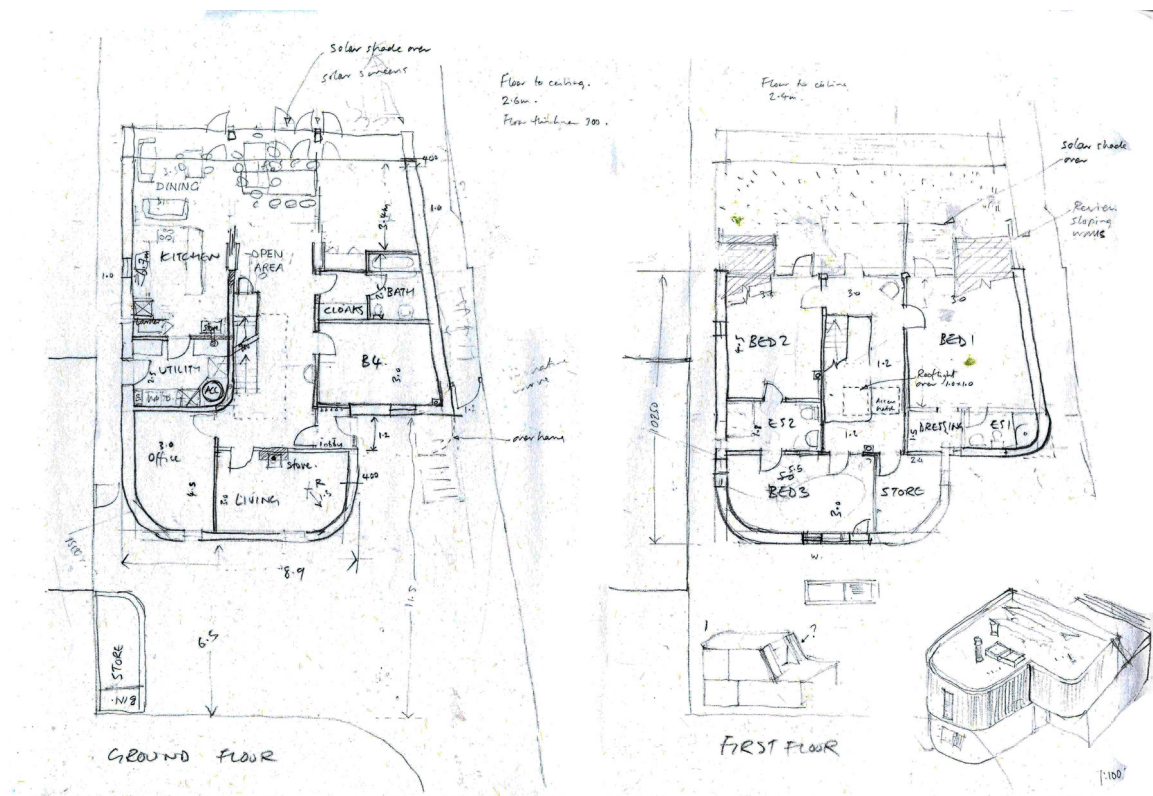 solar shade over
solar screens
Floor to ceiling.
2.6m.
Floor thickness 300.
400
DINING
1.0
3.4m
KITCHEN
OPEN
AREA
1.0
BATH
CLOAKS
Store
UTILITY
B4.
3.0
ACC
1.2
lobby
1.2
overhang
3.0
Office
Store.
4.5
3.0
LIVING
R
1.5
400
1500
8.9
11.5
6.5
STORE
BIN.
GROUND FLOOR
Floor to ceiling
2.4m
solar shade
over
Review
sloping
walls
3.0
3.0
BED2
4.5
BED1
1.2
Rooflight
over 1.0x1.0
10250
Access
hatch
ES2
1.8
DRESSING
ES1
1.5
1.2
2.4
5.5
BED3
3.0
STORE
W.
1
?
FIRST FLOOR
1:100